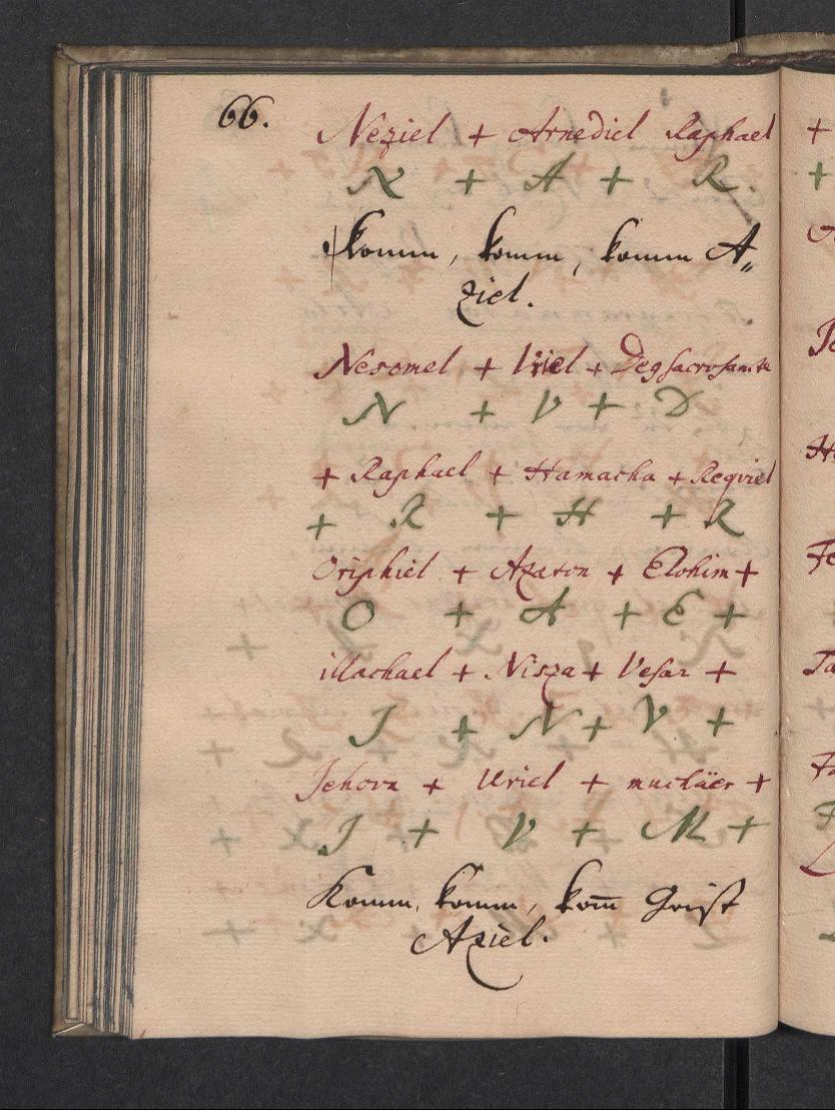 66.
Neziel + Arnediel Raphael
N + A + R.
Komm, komm, komm A„
ziel.
Nesomel + Vriel + Degsacrosancte
N + V + D
+ Raphael + Hamacha + Reqviel
+ R + H + R
Oriphiel + Azaron + Elohim +
O + A + E +
illachael + Nisza + Vesar +
J + N + V +
Jehova + Uriel +
J + V + M +
Komm, komm, kom̅ Geist
Aziel.